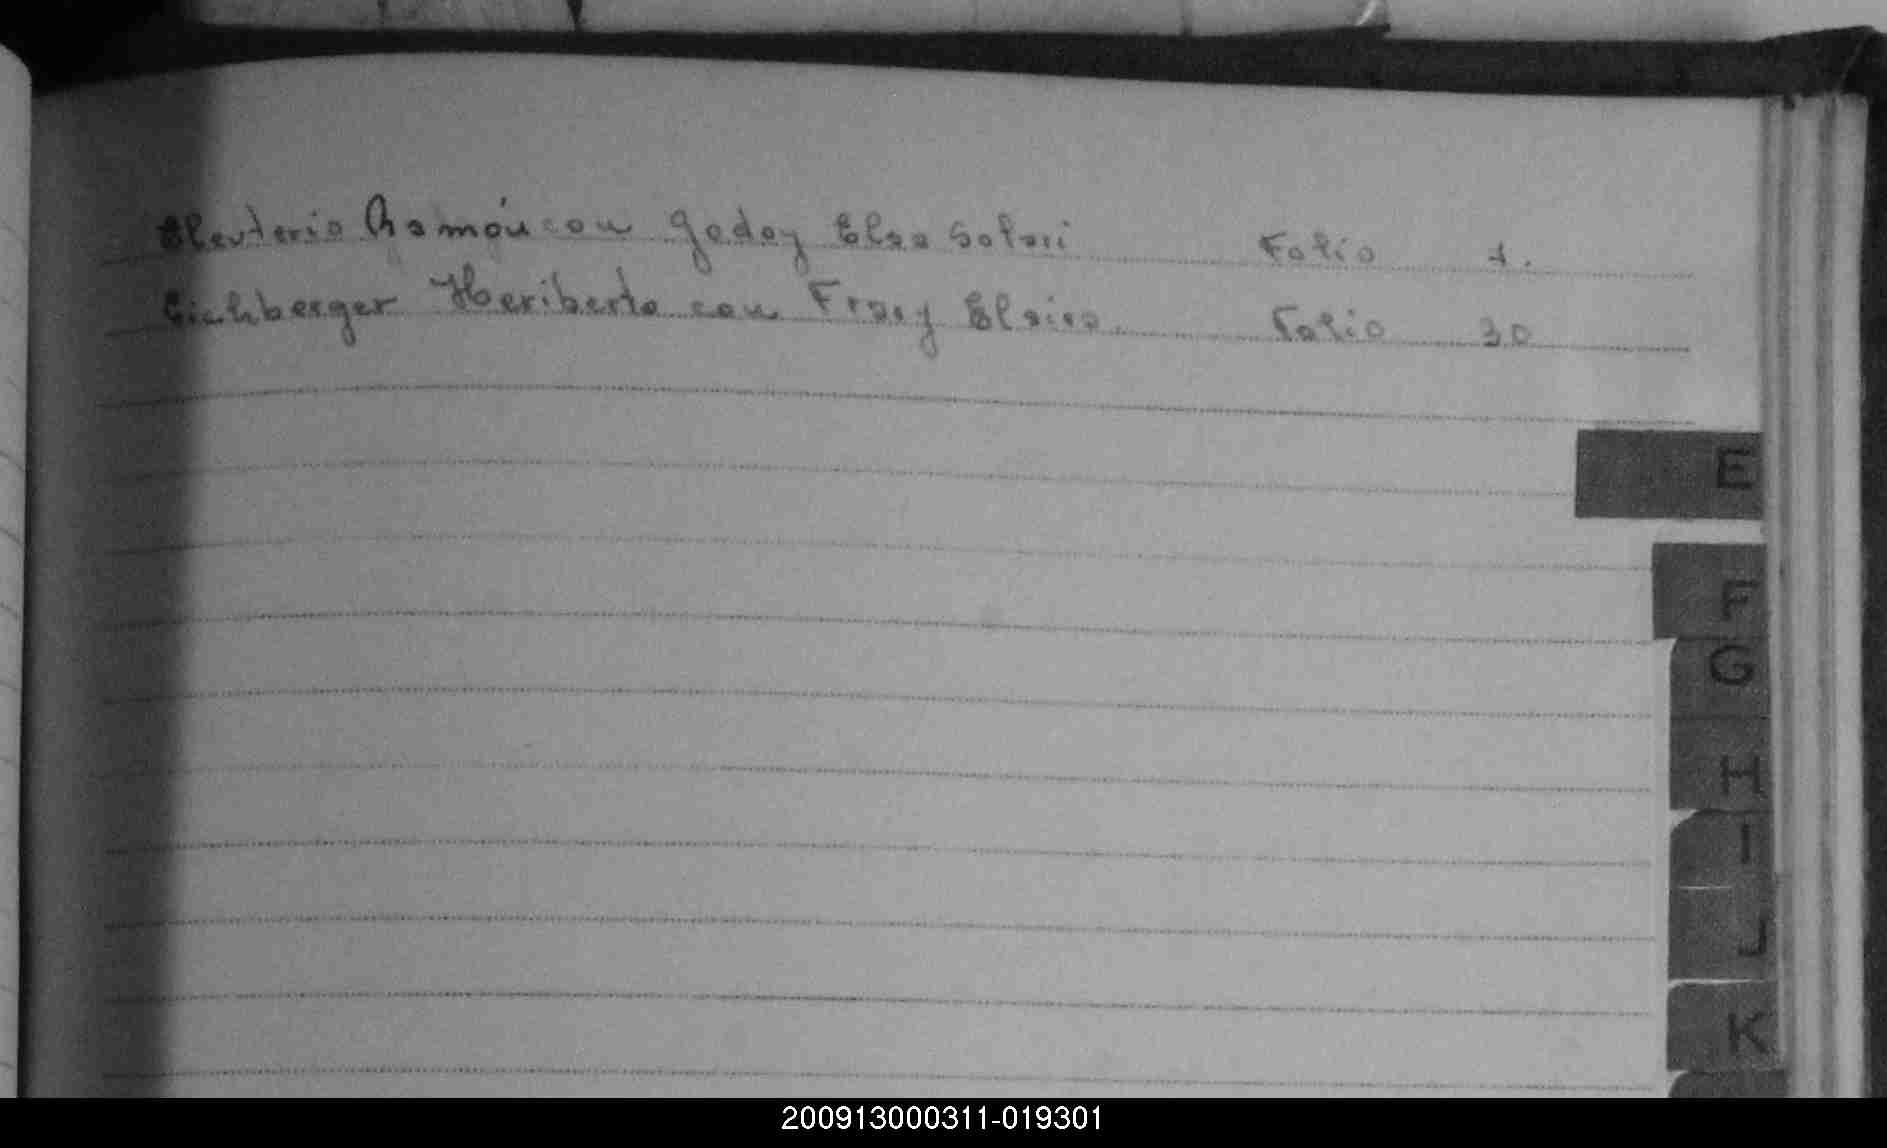 Eleuterio Ramón con Godoy Elsa Folio
Eichberger Heriberto con Frey Folio 30
E
F
G
H
I
J
K
200913000311-019301